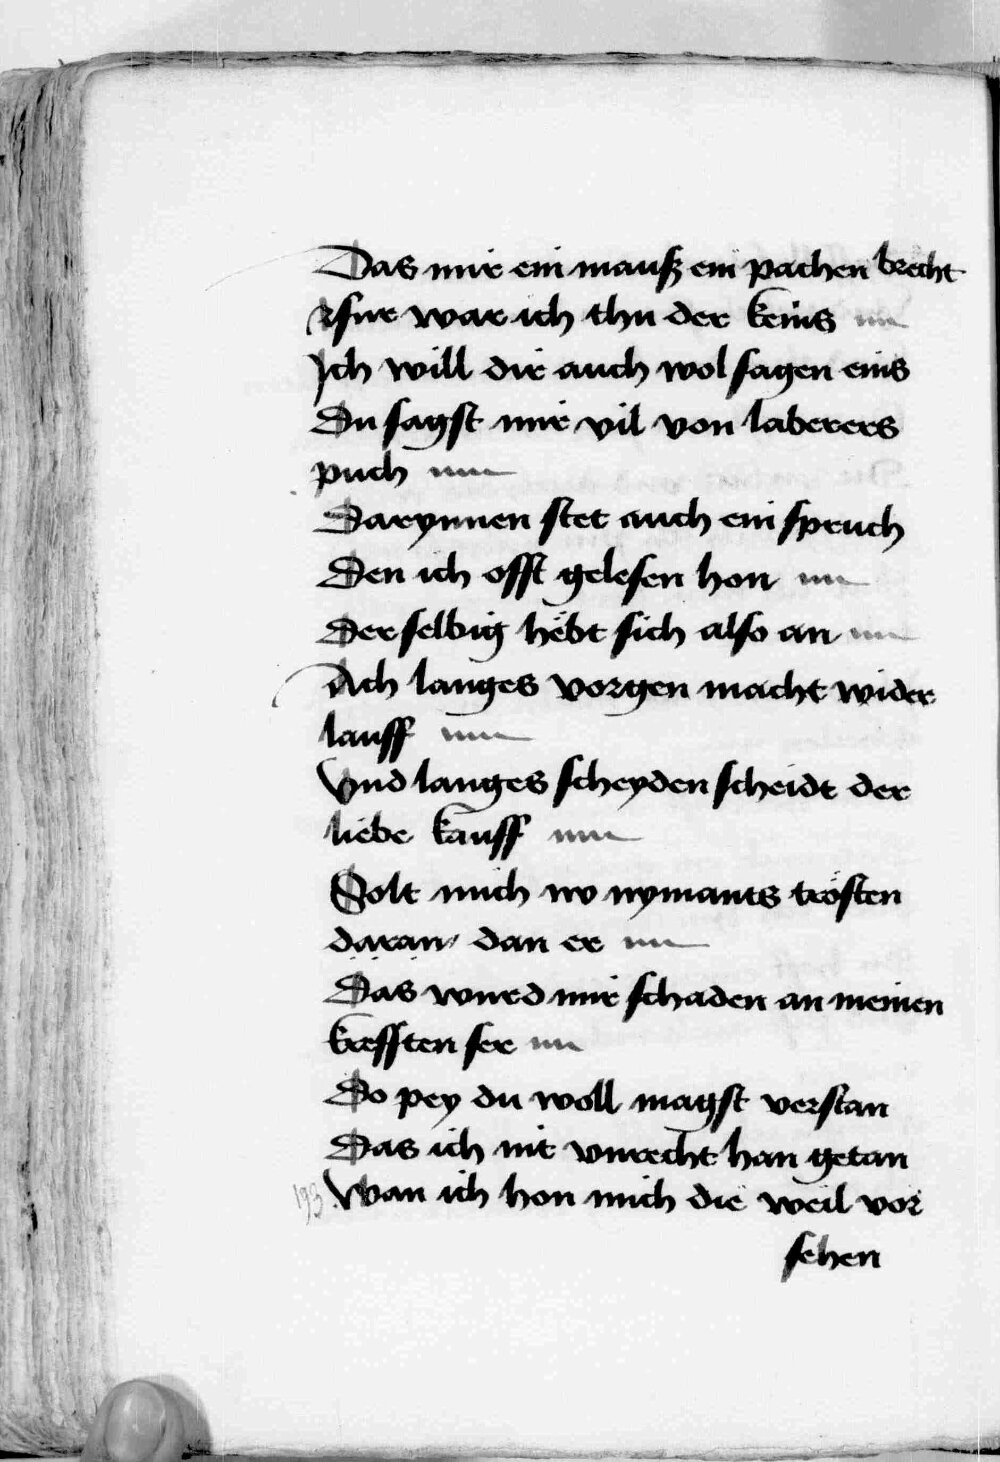 Das mir ein mausz ein pachen brecht
Zfur war ich thu der keins
Ich will dir auch wol sagen eins
Du sagst mir vil von laberers
puch
Darynnen stet auch ein spruch
Den ich offt gelesen hon
Der selbig hebt sich also an
Ach langes vorgen macht wider
lauff
Vnd langes scheyden scheidt der
liebe kauff
Solt mich nv nymants trösten
daran dan er
Das wurd mir schaden an meinen
krefften ser
Do pey du woll magst verstan
Das ich nit vnrecht han getan
193 Wan ich hon mich die weil vor
sehen